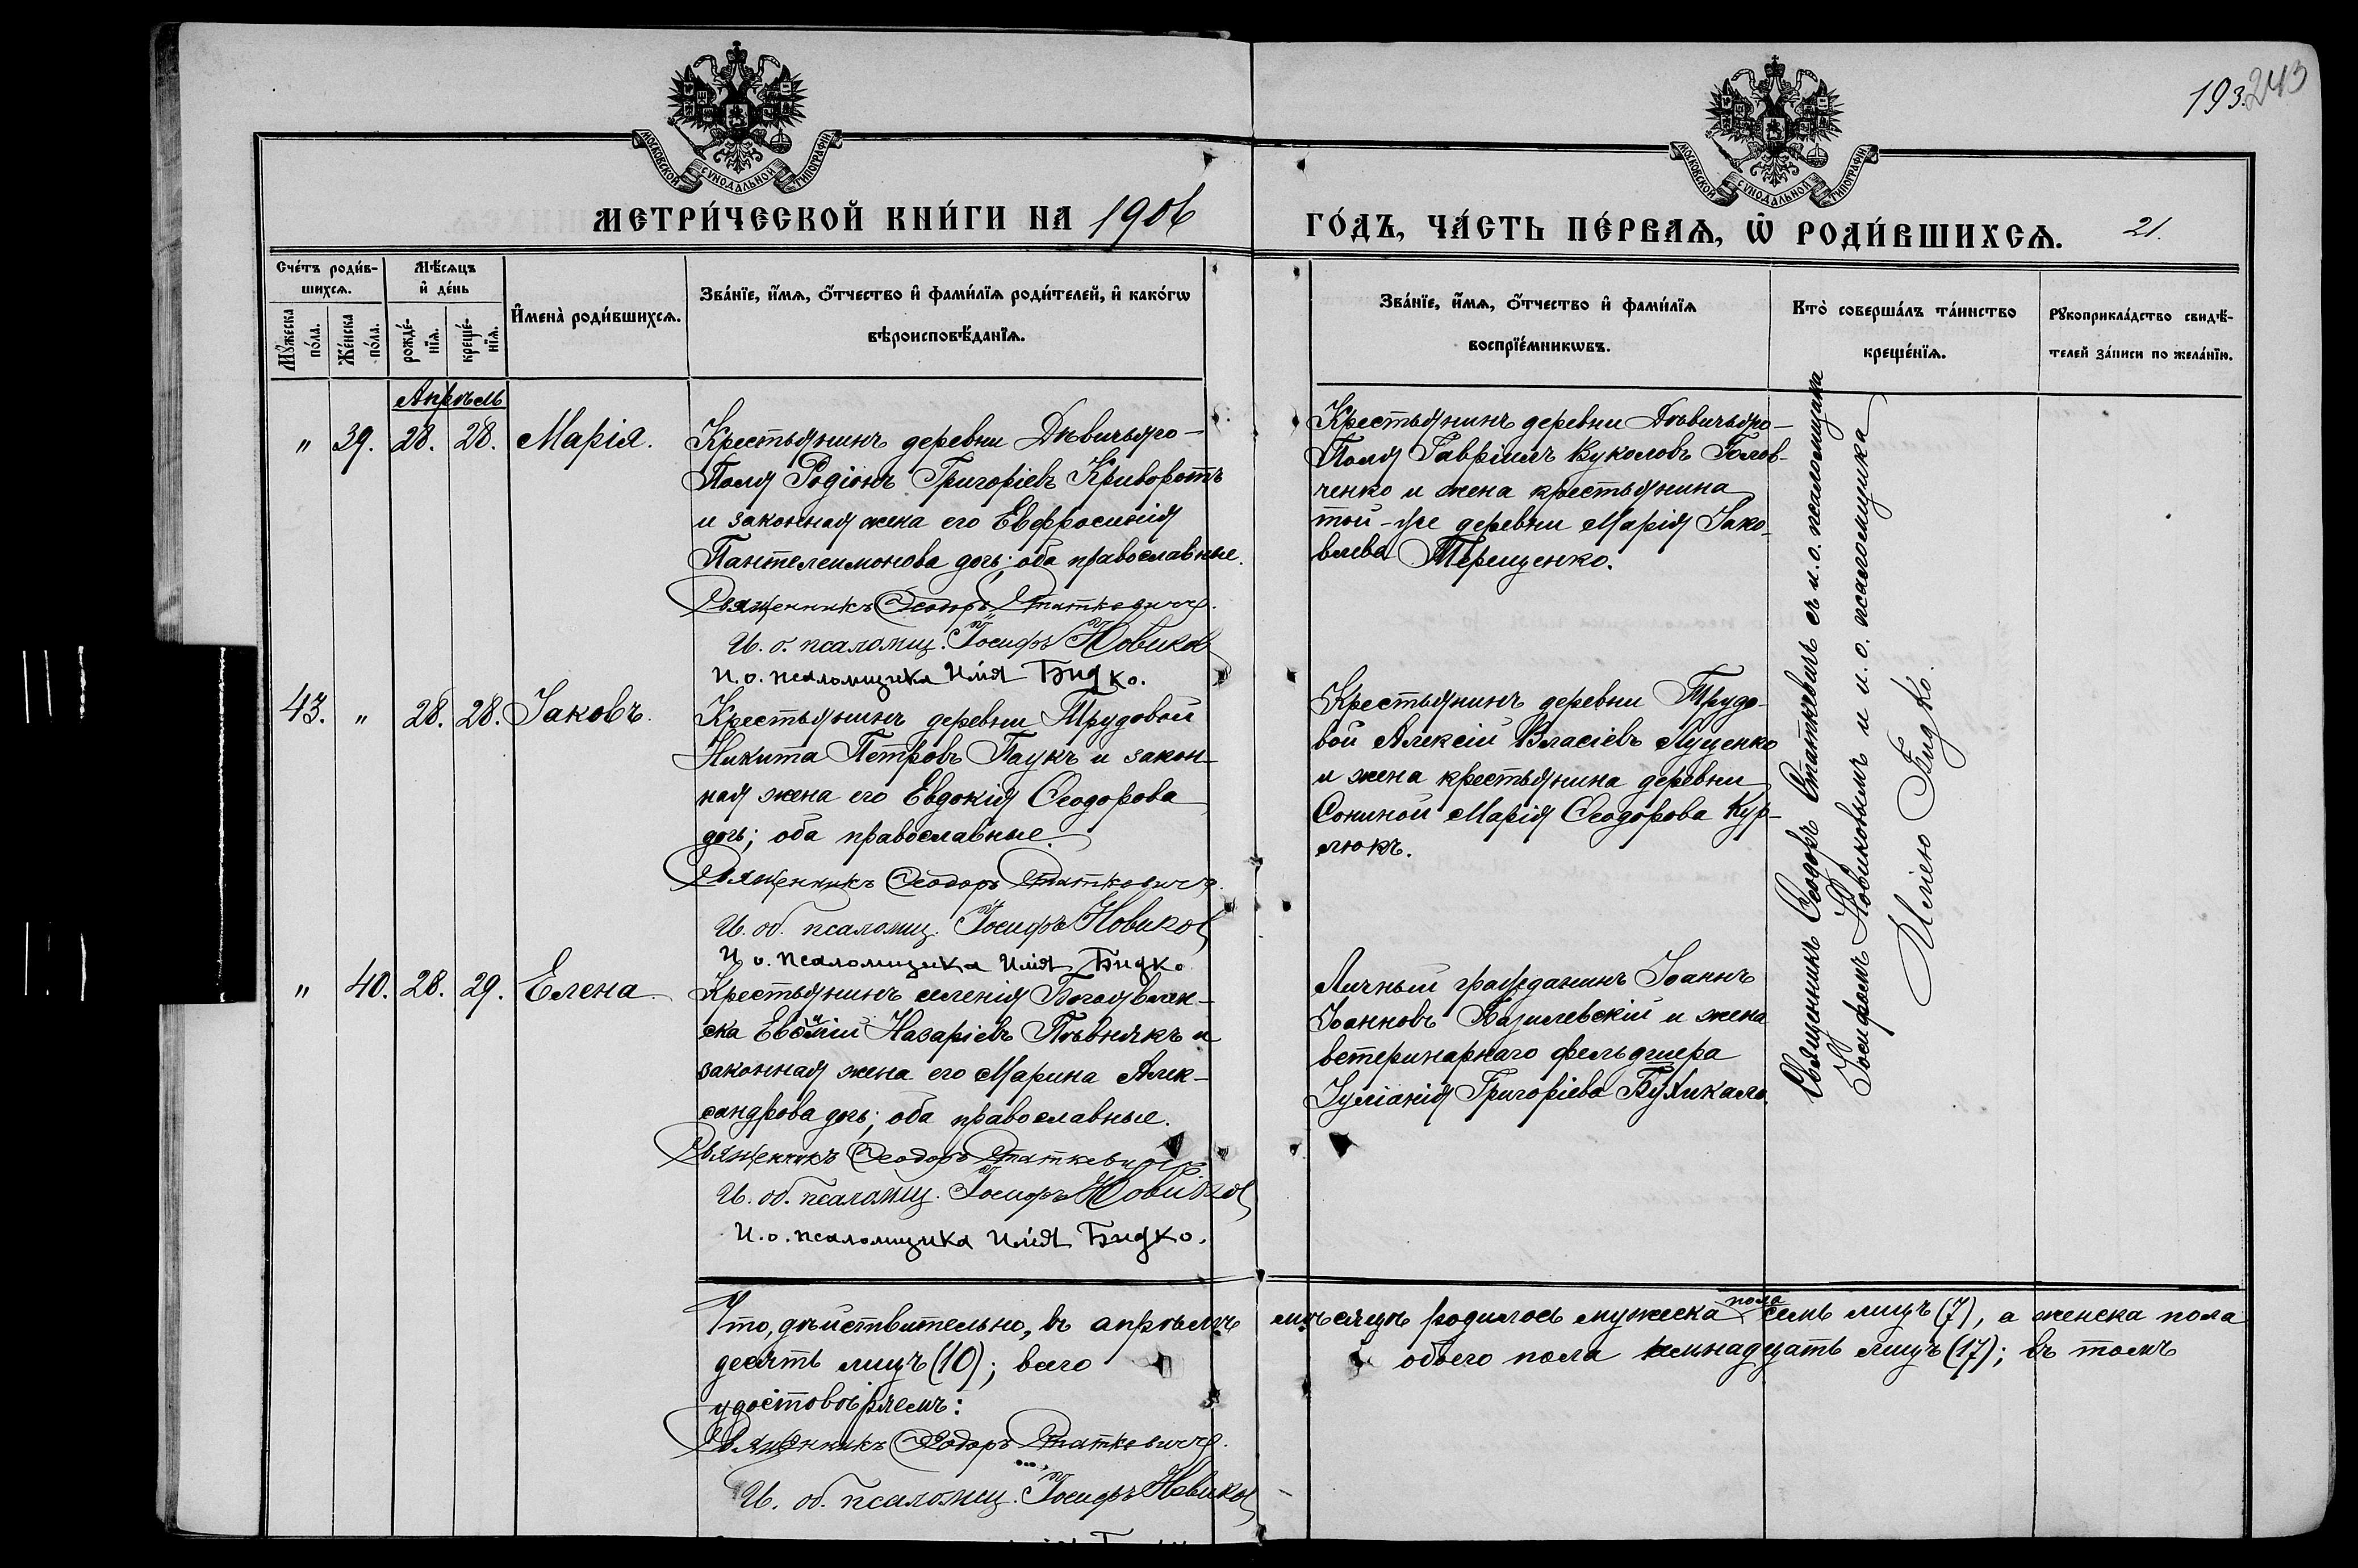 193. 243
МОСКОВСКОЙ СѴНОДАЛЬНОЙ ТИПОГРАФІИ
МОСКОВСКОЙ СѴНОДАЛЬНОЙ ТИПОГРАФІИ
МЕТРИ́ЧЕСКОЙ КНИ́ГИ НА 1906
ГО́ДЪ, ЧА́СТЬ ПЕ́РВАЯ, Ѡ РОДИ́ВШИХСЯ. 21.
Сче́тъ роди́в-
шихся.
Мꙋ́жеска по́ла.
Же́нска по́ла.
Мѣ́сяцъ и де́нь
рожде́-нїя.
креще́-нїя.
Имена̀ роди́вшихся.
Зва́нїе, и́мя, ѻ́тчество и фами́лїя роди́телей, и како́гѡ
вѣроисповѣ́данїя.
Зва́нїе, и́мя, ѻ́тчество и фами́лїя
воспрїе́мникѡвъ.
Кто̀ соверша́лъ та́инство
креще́нїя.
Рꙋкоприкла́дство свидѣ́-
телей за́писи по жела́нїю.
Апрѣль
" 39. 28. 28. Марія.
Крестьянинъ деревни Дѣвичьяго-
Поля Родіонъ Григоріевъ Криворотъ
и законная жена его Евфросинія
Пантелеимонова дочь; оба православные.
Священникъ Ѳеодоръ Статкевичъ.
И. о. псаломщ. Іосифъ Новиков
И. о. псаломщика Илія Бидко.
Крестьянинъ деревни Дѣвичьяго-
Поля Гавріилъ Вуколовъ Голов-
ченко и жена крестьянина
той-же деревни Марія Іако-
влева Терещенко.
43. " 28. 28. Іаковъ.
Крестьянинъ деревни Трудовой
Никита Петровъ Паукъ и закон-
ная жена его Евдокія Ѳеодорова
дочь; оба православные.
Священникъ Ѳеодоръ Статкевичъ.
И. об. псаломщ. Іосифъ Новиков
И о. псаломщика Илія Бидко
Крестьянинъ деревни Трудо-
вой Алексій Власіевъ Луценко
и жена крестьянина деревни
Сониной Марія Ѳеодорова Кур-
люкъ.
" 40. 28. 29. Елена
Крестьянинъ селенія Богоявлен-
ска Евѳимій Назаріевъ Пѣвнякъ и
законная жена его Марина Алек-
сандрова дочь; оба православные.
Священникъ Ѳеодоръ Статкевичъ
И. об. псаломщ. Іосифъ Новиков
И. о. псаломщика Илія Бидко.
Личный гражданинъ Іоаннъ
Іоанновъ Базилевскій и жена
ветеринарнаго фельдшера
Іуліанія Григоріева
Священникъ Ѳеодоръ Статкевичъ съ и. о. псаломщика
Іосифомъ Новиковымъ и и. о. псаломщика
Иліею Бидко.
Что, дѣйствительно, въ апрѣлѣ мѣсяцѣ родилось мужеска пола семь лицъ (7), а женска пола
десять лицъ (10); всего обоего пола семнадцать лицъ (17); въ томъ
удостовѣряемъ:
Священникъ Ѳеодоръ Статкевичъ.
И. об. псаломщ. Іосифъ Новиков